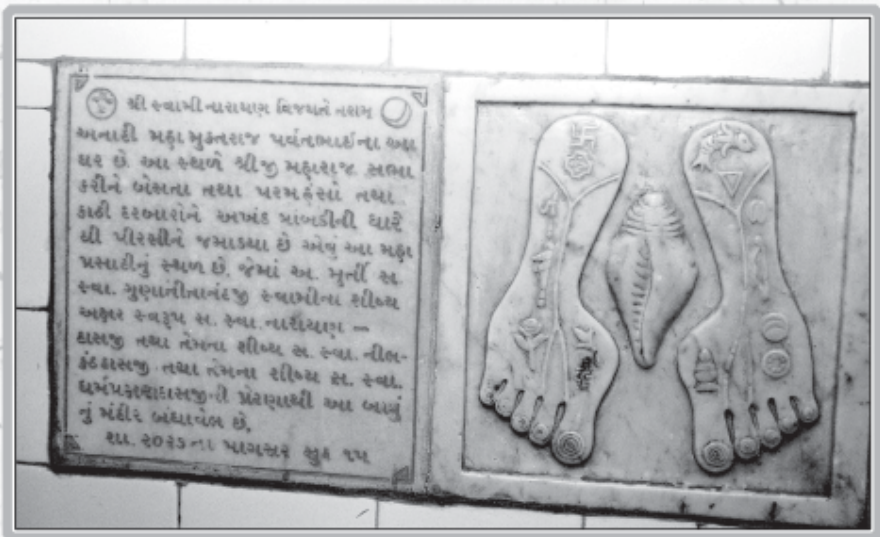 શ્રી સ્વામીનારાયણ વિજયતે તરામ
અનાદી મહા મુક્તરાજ પર્વતભાઈના આ
ઘર છે. આ સ્થળે શ્રીજી મહારાજ સભા
કરીને બેસતા તથા પરમહંસો તથા
કાઠી દરબારોને અખંડ ત્રાંબડીની ધારે
થી પીરસીને જમાડયા છે એવું આ મહા
પ્રસાદીનું સ્થળ છે. જેમાં અ. મૂર્તી સ.
સ્વા. ગુણાતીતાનંદજી સ્વામીના શીષ્ય
અક્ષર સ્વરૂપ સ. સ્વા. નારાયણ –
દાસજી તથા તેમના શીષ્ય સ. સ્વા. નીલ-
કંઠદાસજી તથા તેમના શીષ્ય સ. સ્વા.
ધર્મપ્રકાશદાસજીની પ્રેરણાથી આ
નું મંદીર બંધાવેલ છે.
સા. ૨૦૨૭ના માગસર સુદ ૧૫